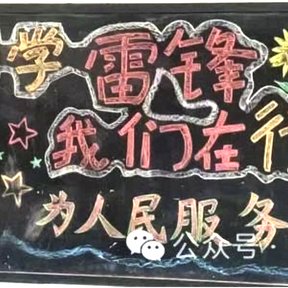 学雷锋
我们在行
为人民服务
公众号·